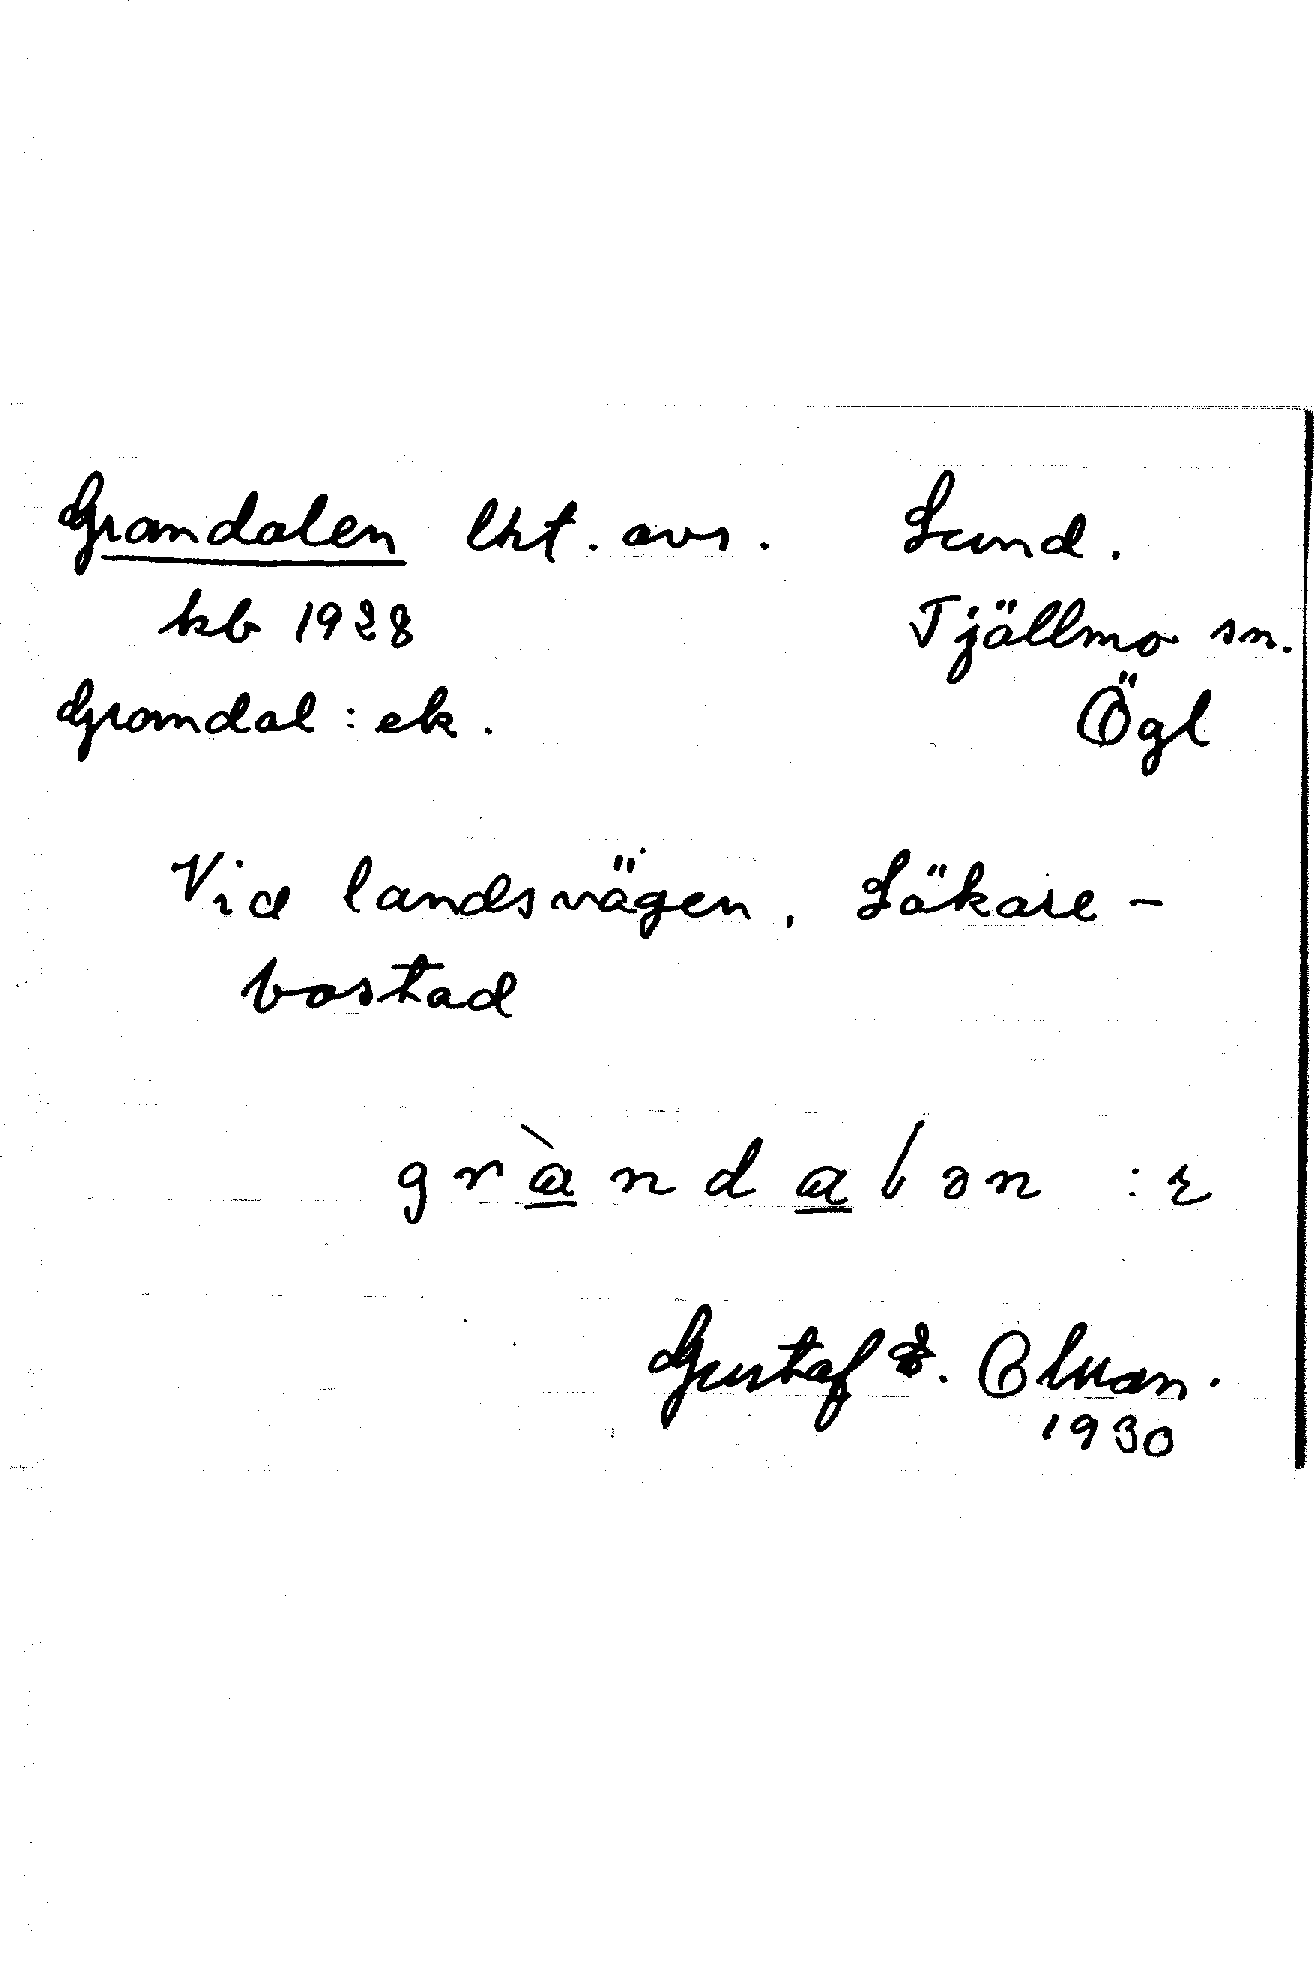 Grandalen lht. avs. Lund.
kb 1928 Tjällmo sn.
Grandal : ek. Ögl
Vid landsvägen. Läkare-
bostad
gràndalən :ɛ
Gustaf
1930